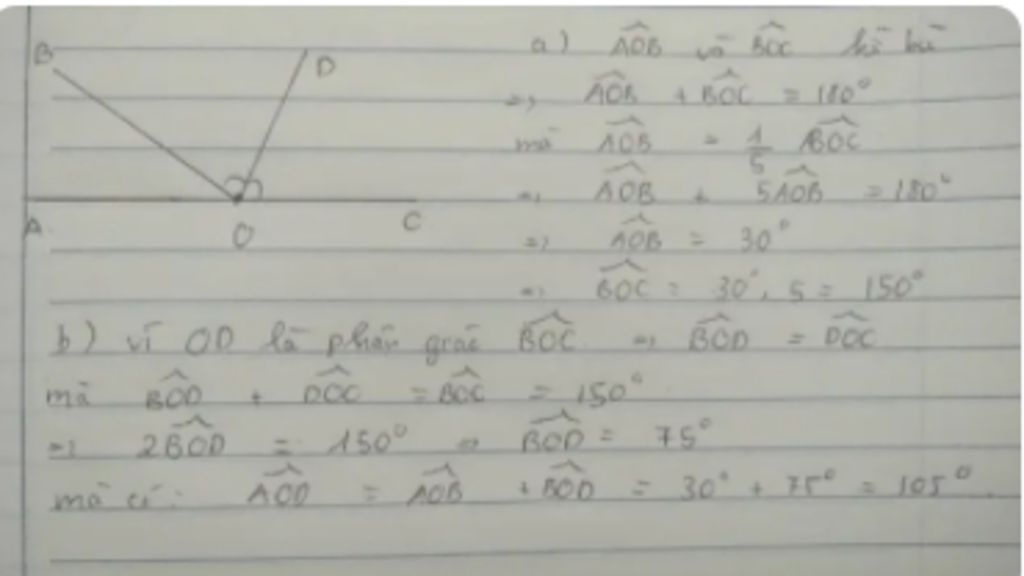 B
D
A
O
C
a) AOB và BOC kề bù
=> AOB + BOC = 180°
mà AOB = 1/5 BOC
=> AOB + 5AOB = 180°
=> AOB = 30°
=> BOC = 30°. 5 = 150°
b) vì OD là phân giác BOC => BOD = DOC
mà BOD + DOC = BOC = 150°
=> 2BOD = 150° => BOD = 75°
mà có: AOD = AOB + BOD = 30° + 75° = 105°.